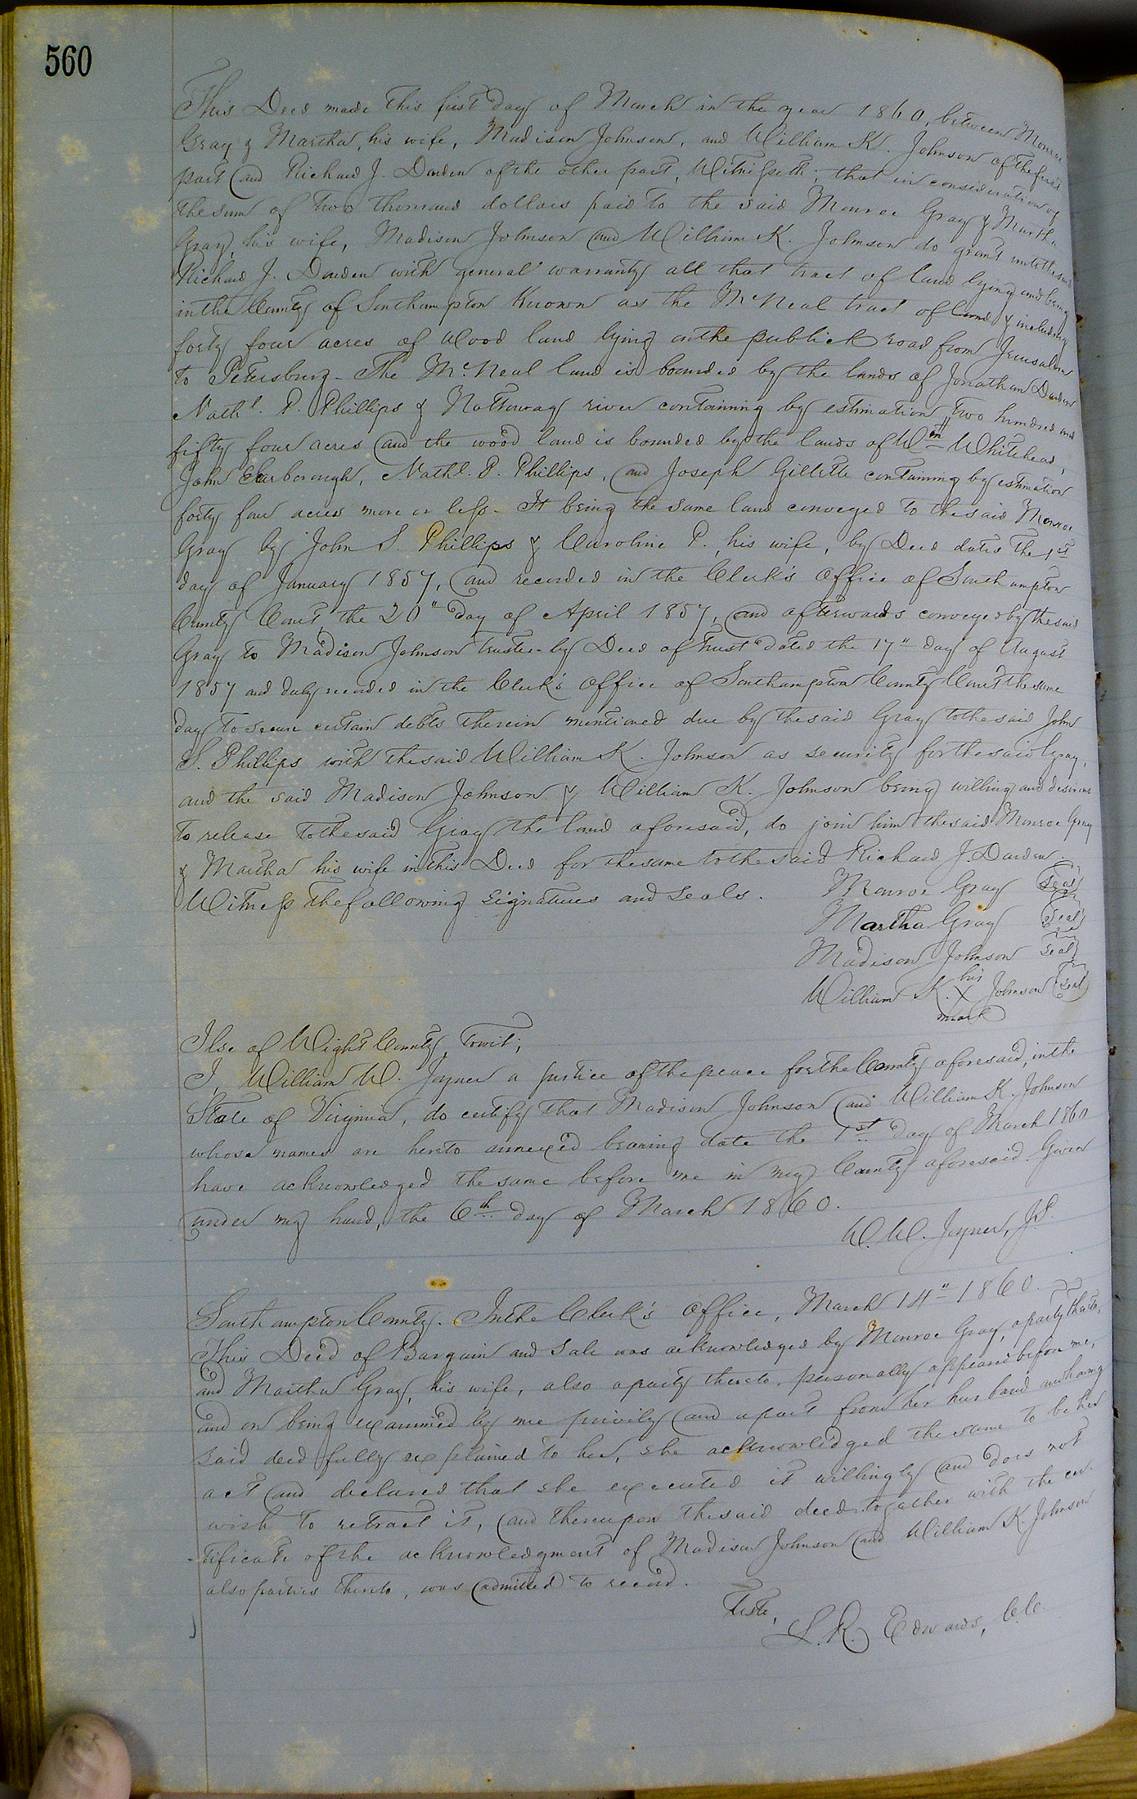 560
This Deed made this first day of March in the year 1860, between Monroe
Gray & Martha, his wife, Madison Johnson, and William K. Johnson of the first
part and Richard J. Darden of the other part, Witnesseth; that in consideration of
the sum of Two thousand dollars paid to the said Monroe Gray & Martha
Gray, his wife, Madison Johnson and William K. Johnson do grant unto the said
Richard J. Darden with general warranty all that tract of land lying and being
in the County of Southampton Known as the McNeal tract of land & including
forty four acres of Wood land lying on the publick road from Jerusalem
to Petersburg - The McNeal land is bounded by the lands of Jonathan Darden
Nathl. P. Phillips & Nottoway river containing by estimation Two hundred and
fifty four acres and the wood land is bounded by the lands of Wm Whitehead,
John Scarborough, Nathl. P. Phillips, and Joseph Gillette containing by estimation
forty four acres more or less - It being the same land conveyed to the said Monroe
Gray by John S. Phillips & Caroline P., his wife, by Deed dated the 1st
day of January 1857, and recorded in the Clerk's Office of Southampton
County Court the 20" day of April 1857, and afterwards conveyed by the said
Gray to Madison Johnson trustee by Deed of trust dated the 17" day of August
1857 and duly recorded in the Clerk's Office of Southampton County Court the same
day to secure certain debts therein mentioned due by the said Gray to the said John
S. Phillips with the said William K. Johnson as security for the said Gray,
and the said Madison Johnson & William K. Johnson being willing and desirous
to release to the said Gray the land aforesaid, do join him the said Monroe Gray
& Martha his wife in this Deed for the same to the said Richard J. Darden.
Witness the following signatures and seals. Monroe Gray Seal
Martha Gray Seal
Madison Johnson Seal
William K. his X mark Johnson Seal
Isle of Wight County, Towit;
I, William W. Joyner a justice of the peace for the County aforesaid, in the
State of Virginia, do certify that Madison Johnson and William K. Johnson
whose names are hereto annexed bearing date the 1st day of March 1860
have acknowledged the same before me in my County aforesaid. Given
under my hand, the 6th day of March 1860.
W. W. Joyner, J.P.
Southampton County - In the Clerk's Office, March 14" 1860.
This Deed of Bargain and Sale was acknowledged by Monroe Gray, a party thereto,
and Martha Gray, his wife, also a party thereto, personally appeared before me,
and on being examined by me privily and apart from her husband and having
said deed fully explained to her, she acknowledged the same to be her
act and declared that she executed it willingly and does not
wish to retract it, and thereupon the said deed together with the cer-
-tificate of the acknowledgment of Madison Johnson and William K. Johnson
also parties thereto, was admitted to record.
Teste,
L. R. Edwards, C.C.